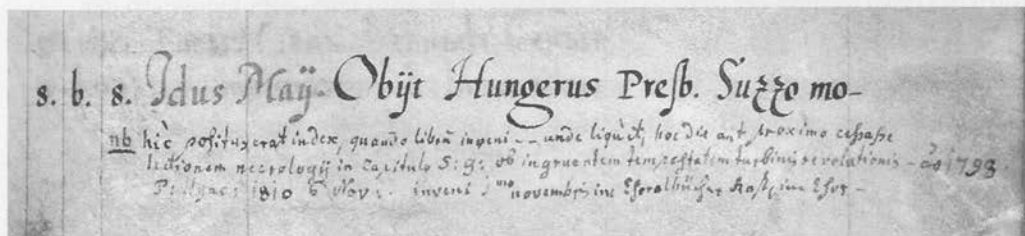 8. b. 8. Idus Maÿ. Obÿt Hungerus Presb. Suzzo mo-
nb hic positus erat index, quando librū inveni -- unde liquet, hoc die aut proximo cessasse
lectionem necrologÿ in Capitulo S: g: ob ingruentem tempestatem turbinis revolutionis - aō 1793
1810 6 Nov: inveni novembris im Choralbücher Kast, im Chor -